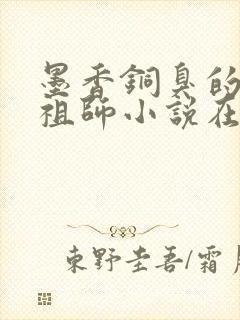 墨香銅臭的
祖師小說在
東野圭吾/霜月